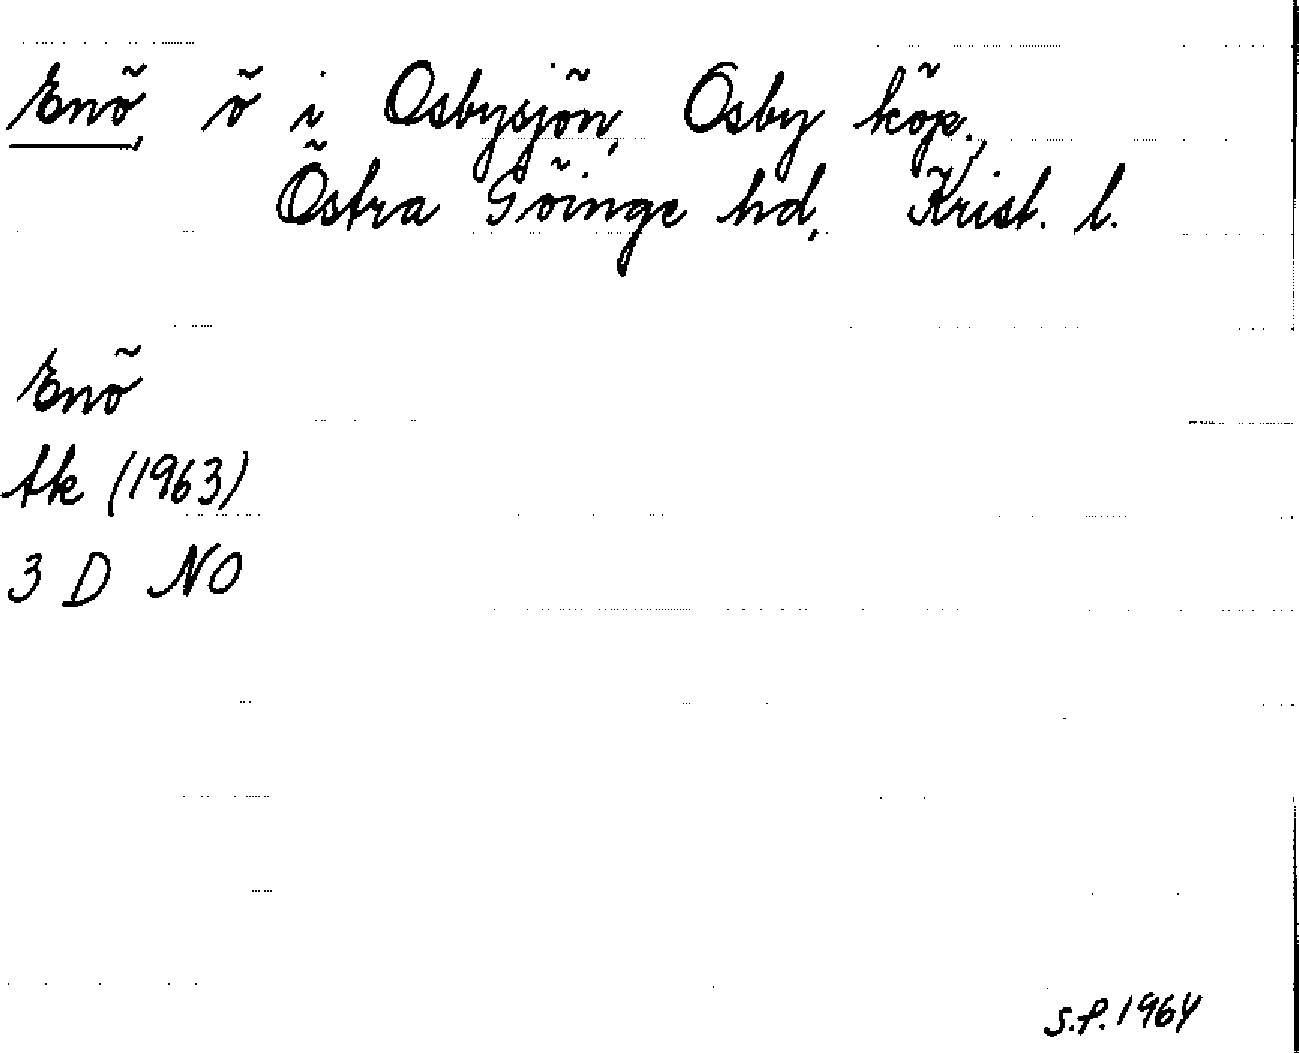 Enö, ö i Osbysjön, Osby köp.,
Östra Göinge hd, Krist. l.
Enö
tk (1963)
3 D NO
S.P. 1964